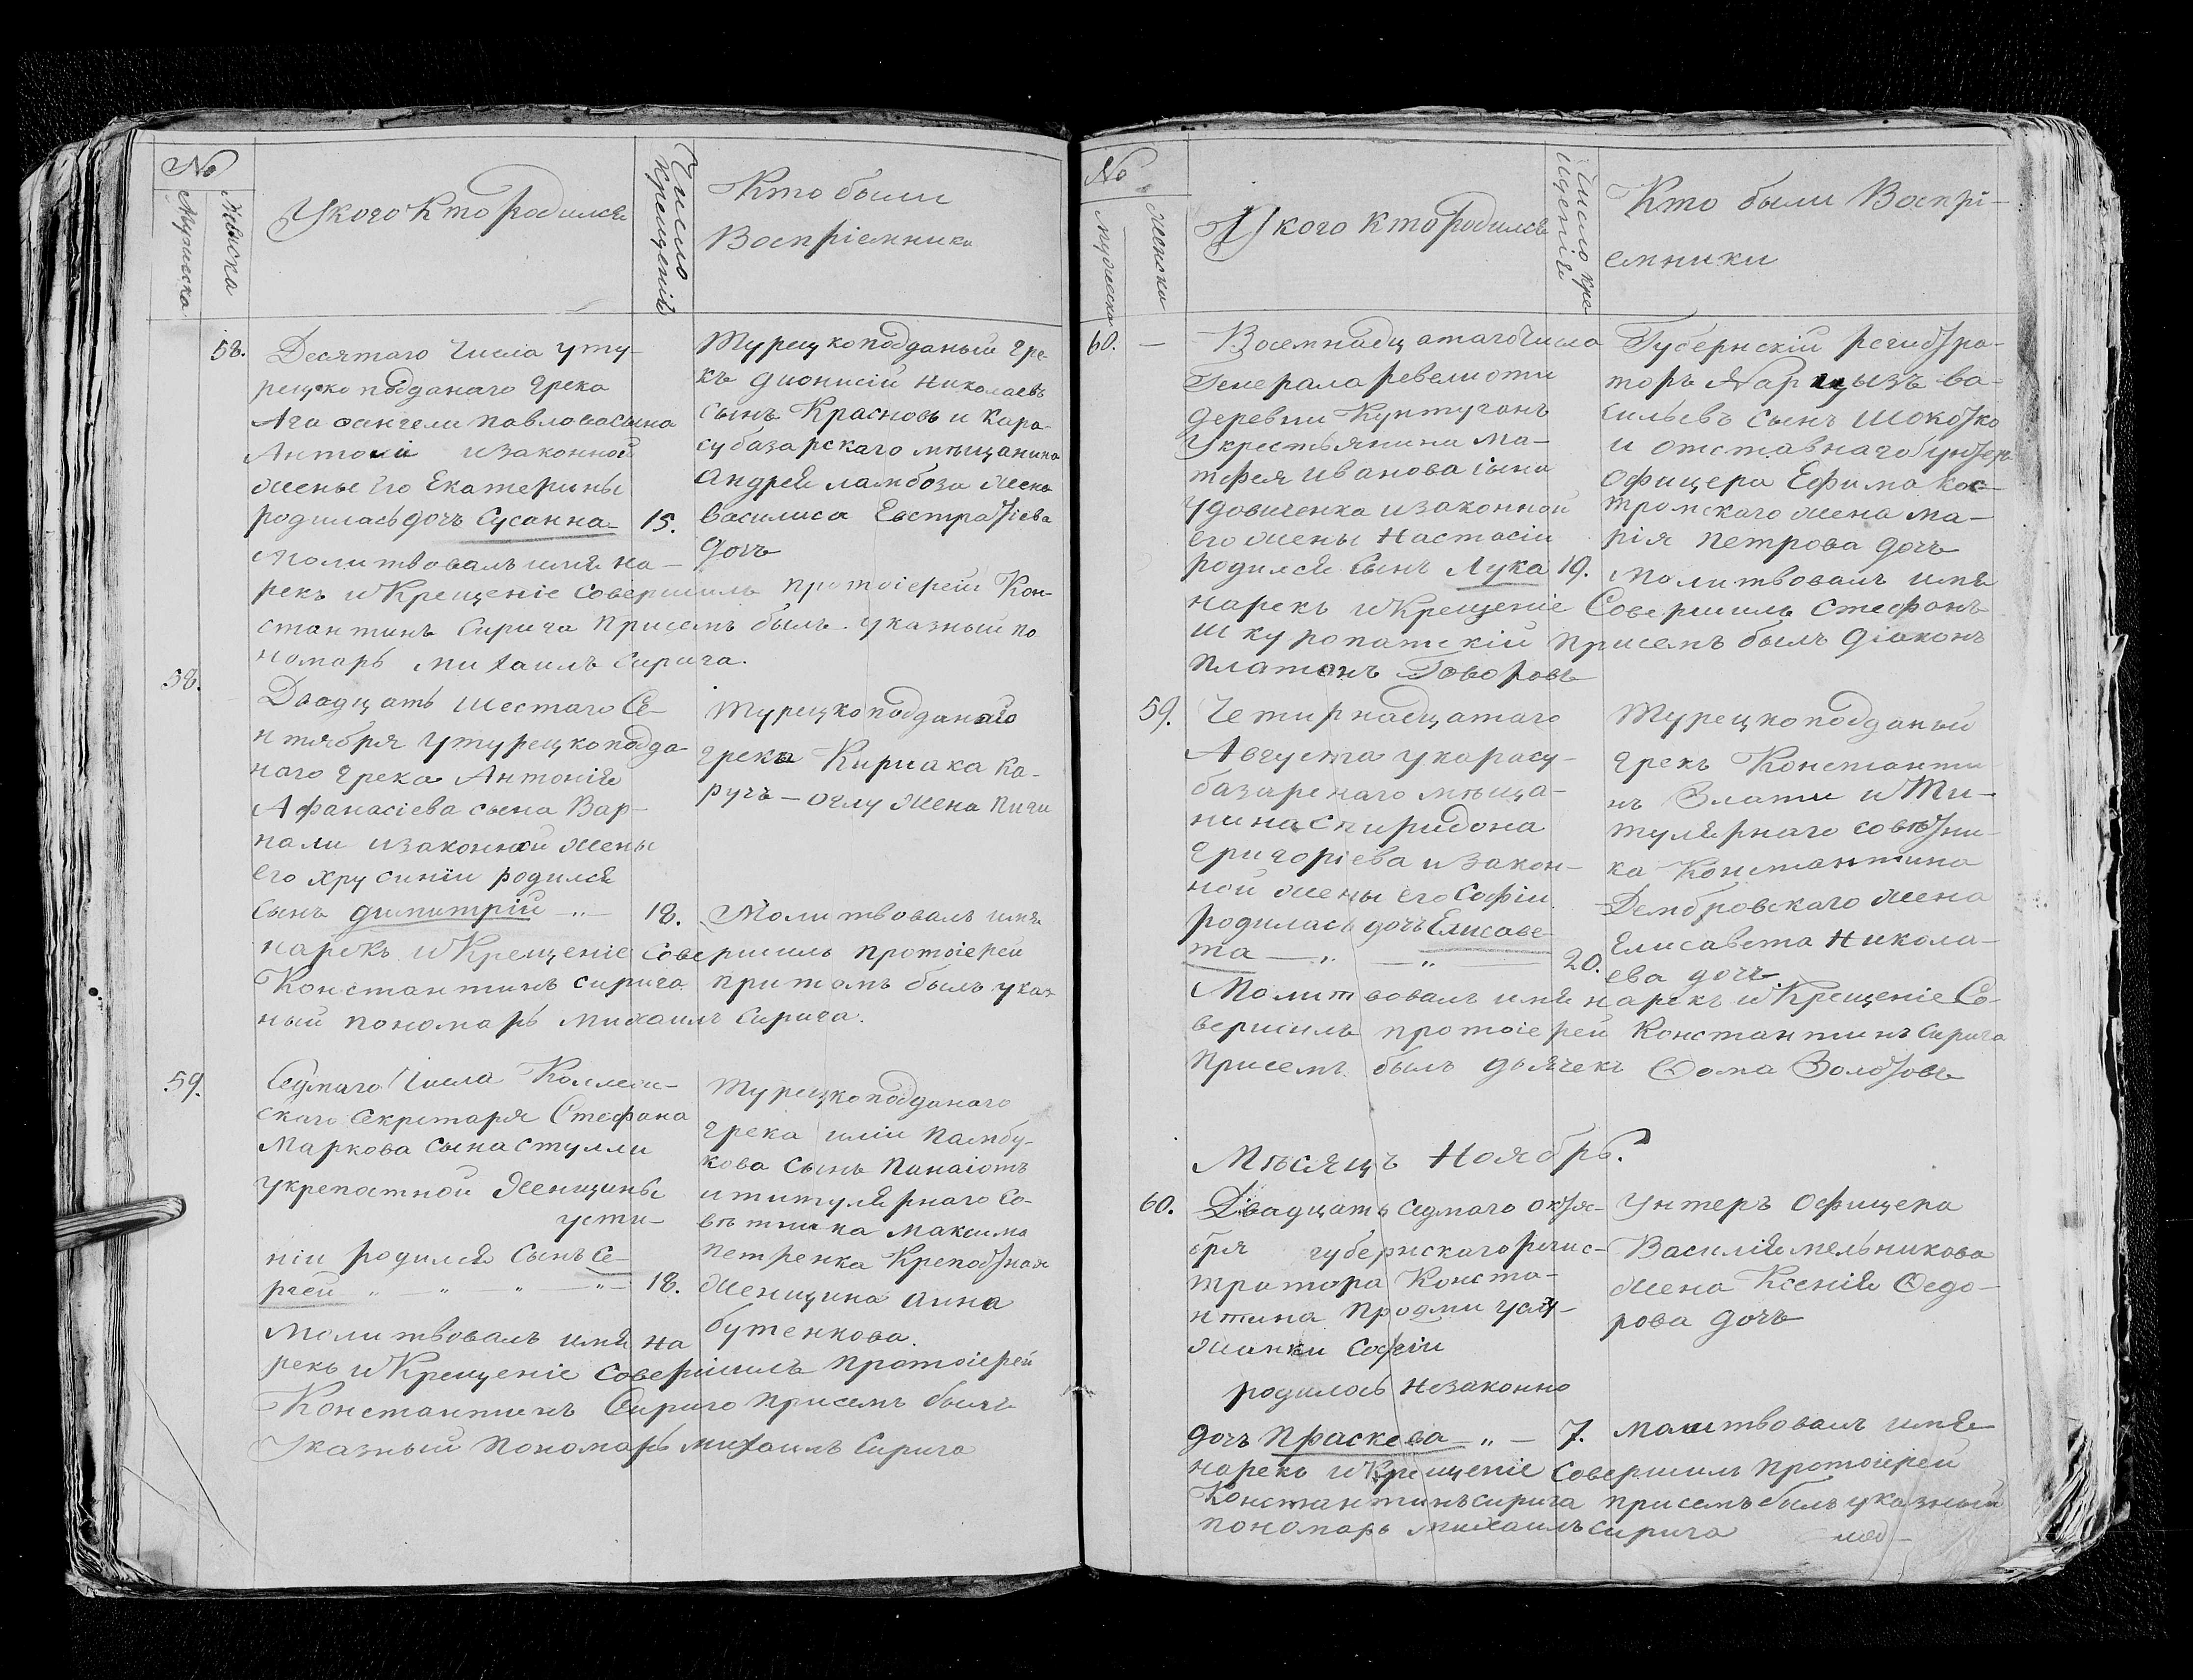 No
Мужеска
Женска
У кого кто родился
Число
крещенія
Кто были
Воспріемники
58.
Десятаго Числа у ту-
рецко подданаго Грека
Агафангела павлова сына
Антоній и законной
жены Его Екатерины
родилась дочь Сусанна 15.
Молитвовалъ имя на-
рекъ и Крещеніе Совершилъ протоіерей Кон-
стантинъ Сирига Присемъ былъ указный по
номарь михаилъ Сирига.
Турецкоподданый гре-
къ дионисій Николаевъ
сынъ Красновъ и Кара-
субазарскаго мѣщанина
андрея ламбоза жена
василиса Евстратіева
дочь
58.
Двадцать шестаго Се-
нтября у турецкоподда
наго Грека Антонія
Афанасіева сына Вар-
нали и законной жены
его хрусиніи родился
сынъ димитрій " 18.
Турецкоподданаго
грека Кириака Ка-
ручъ-оглу жена пичи
Молитвовалъ имя
нарекъ и Крещеніе совершилъ протоіерей
Константинъ сирига притомъ былъ указ
ный пономарь михаилъ Сирига.
59.
Седмаго Числа Коллеж-
скаго секретаря Стефана
Маркова сына стулли
у крепостной женщины
усти-
ніи родился сынъ Се-
ргей " " " " 18.
Турецкоподданаго
грека иліи памбу-
кова сынъ панаіотъ
и титулярнаго Со-
вѣтника максима
петренка Крепостная
женщина анна
бутенкова.
Молитвовалъ имя на
рекъ и Крещеніе совершилъ протоіерей
Константинъ Сирига присемъ былъ
Указный пономарь михаилъ Сирига
No
мужеска
женска
У кого кто родился
Число кре
щенія
Кто были Воспрі-
емники
60. —
Восемнадцатаго числа
Генерала ревелиоти
деревни Кунтуганъ
У крестьянина ма-
тфея иванова сына
Удовиченка и законной
его жены Настасіи
родился сынъ Лука 19.
Губернскій регистра-
торъ Наркызъ ва-
сильевъ сынъ шокотко
и отставнаго унтеръ
офицера Ефима Кос-
тромскаго жена ма-
рія петрова дочь
Молитвовалъ имя
нарекъ и Крещеніе Совершилъ Стефанъ
шкуропатскій присемъ былъ діаконъ
платонъ Говоровъ
59.
Четирнадцатаго
Августа у карасу-
базарскаго мѣща-
нина Спиридона
григоріева и закон-
ной жены его Софіи
родилась дочь Елисаве-
та " " 20.
Турецкоподданый
грекъ Константи-
нъ Злати и Ти-
тулярнаго совѣтни-
ка Константина
Дембровскаго жена
Елисавета Никола-
ева дочь
Молитвовалъ имя нарекъ и Крещеніе Со-
вершилъ протоіерей Константинъ сирига
Присемъ былъ дьячекъ Ѳома Золотовъ
Мѣсяцъ Ноябрь.
60.
Двадцать седмаго октя-
бря губернскаго регис-
тратора Конста-
нтина
жанки Софіи
родилась незаконно
дочь праскева " — 7.
Унтеръ Офицера
Василія мельникова
жена Ксенія Ѳедо-
рова дочь
молитвовалъ имя
нарекъ и Крещеніе совершилъ протоіерей
Константинъ сирига присемъ былъ указный
пономарь михаилъ сирига